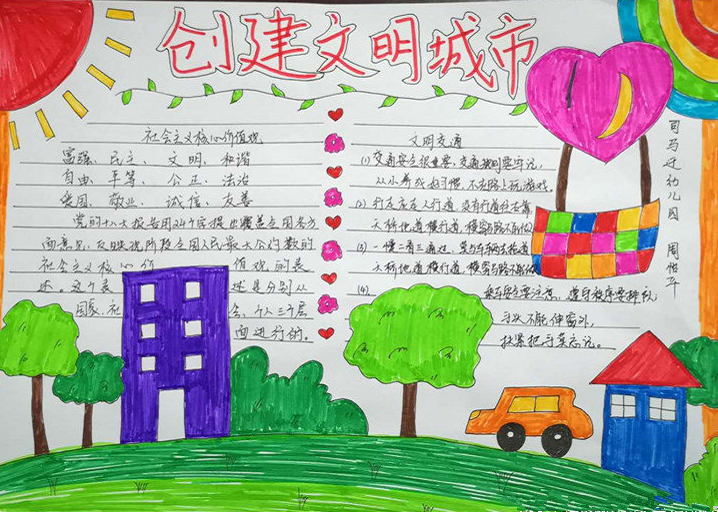 创建文明城市
社会主义核心价值观
富强、民主、文明、和谐
自由、平等、公正、法治
爱国、敬业、诚信、友善
党的十八大报告用24个字提出覆盖全国各方
面意见,反映现阶段全国人民最大公约数的
社会主义核心价值观的表
述。这个表述是分别从
国家,社会,个人三个层
面进行的。
文明交通
(1)交通安全很重要,交通规则要牢记,
从小养成好习惯,不在路上玩游戏。
(2)行走应在人行道,没有行道往右靠,
天桥地道横行道,横穿马路不
(3)一慢二看三通过,莫与车辆去抢道
天桥地道横行道,横穿马路不
(4)乘车安全要注意,遵守秩序要排队,
手头不能伸窗外,
扶紧把手莫忘记。
司马迁幼儿园
周